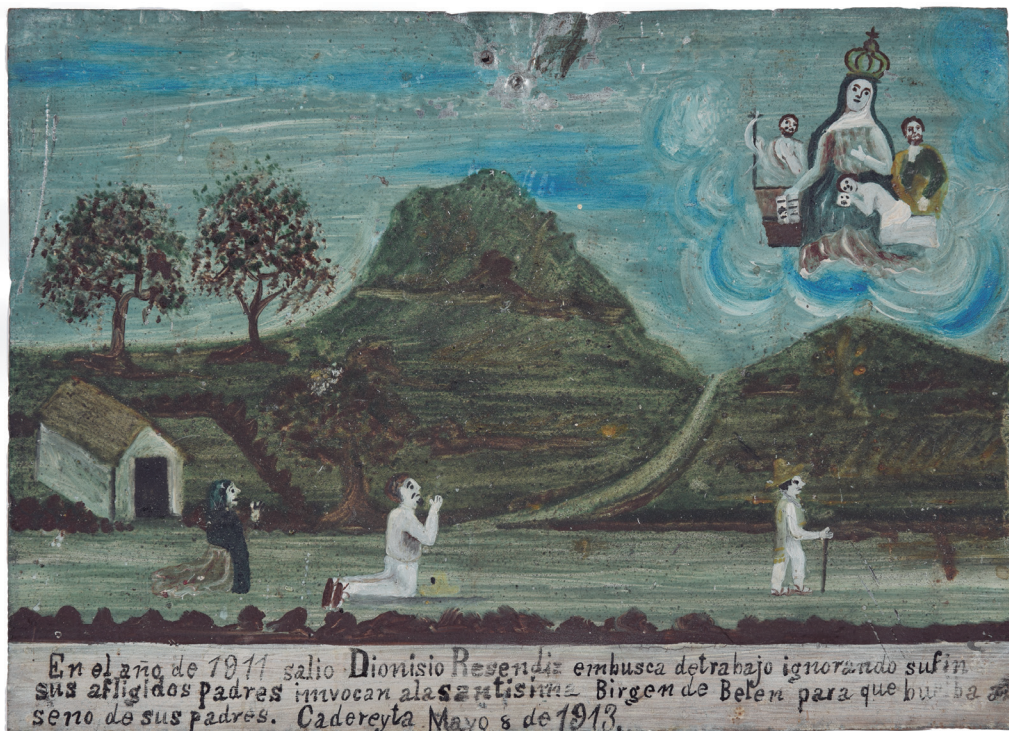 En el año de 1911 salio Dionisio Resendiz embusca detrabajo ignorando sufin
sus afligidos Padres imvocan alasantisima Birgen de Belen para que buelba al
seno de sus padres. Cadereyta Mayo 8 de 1913.